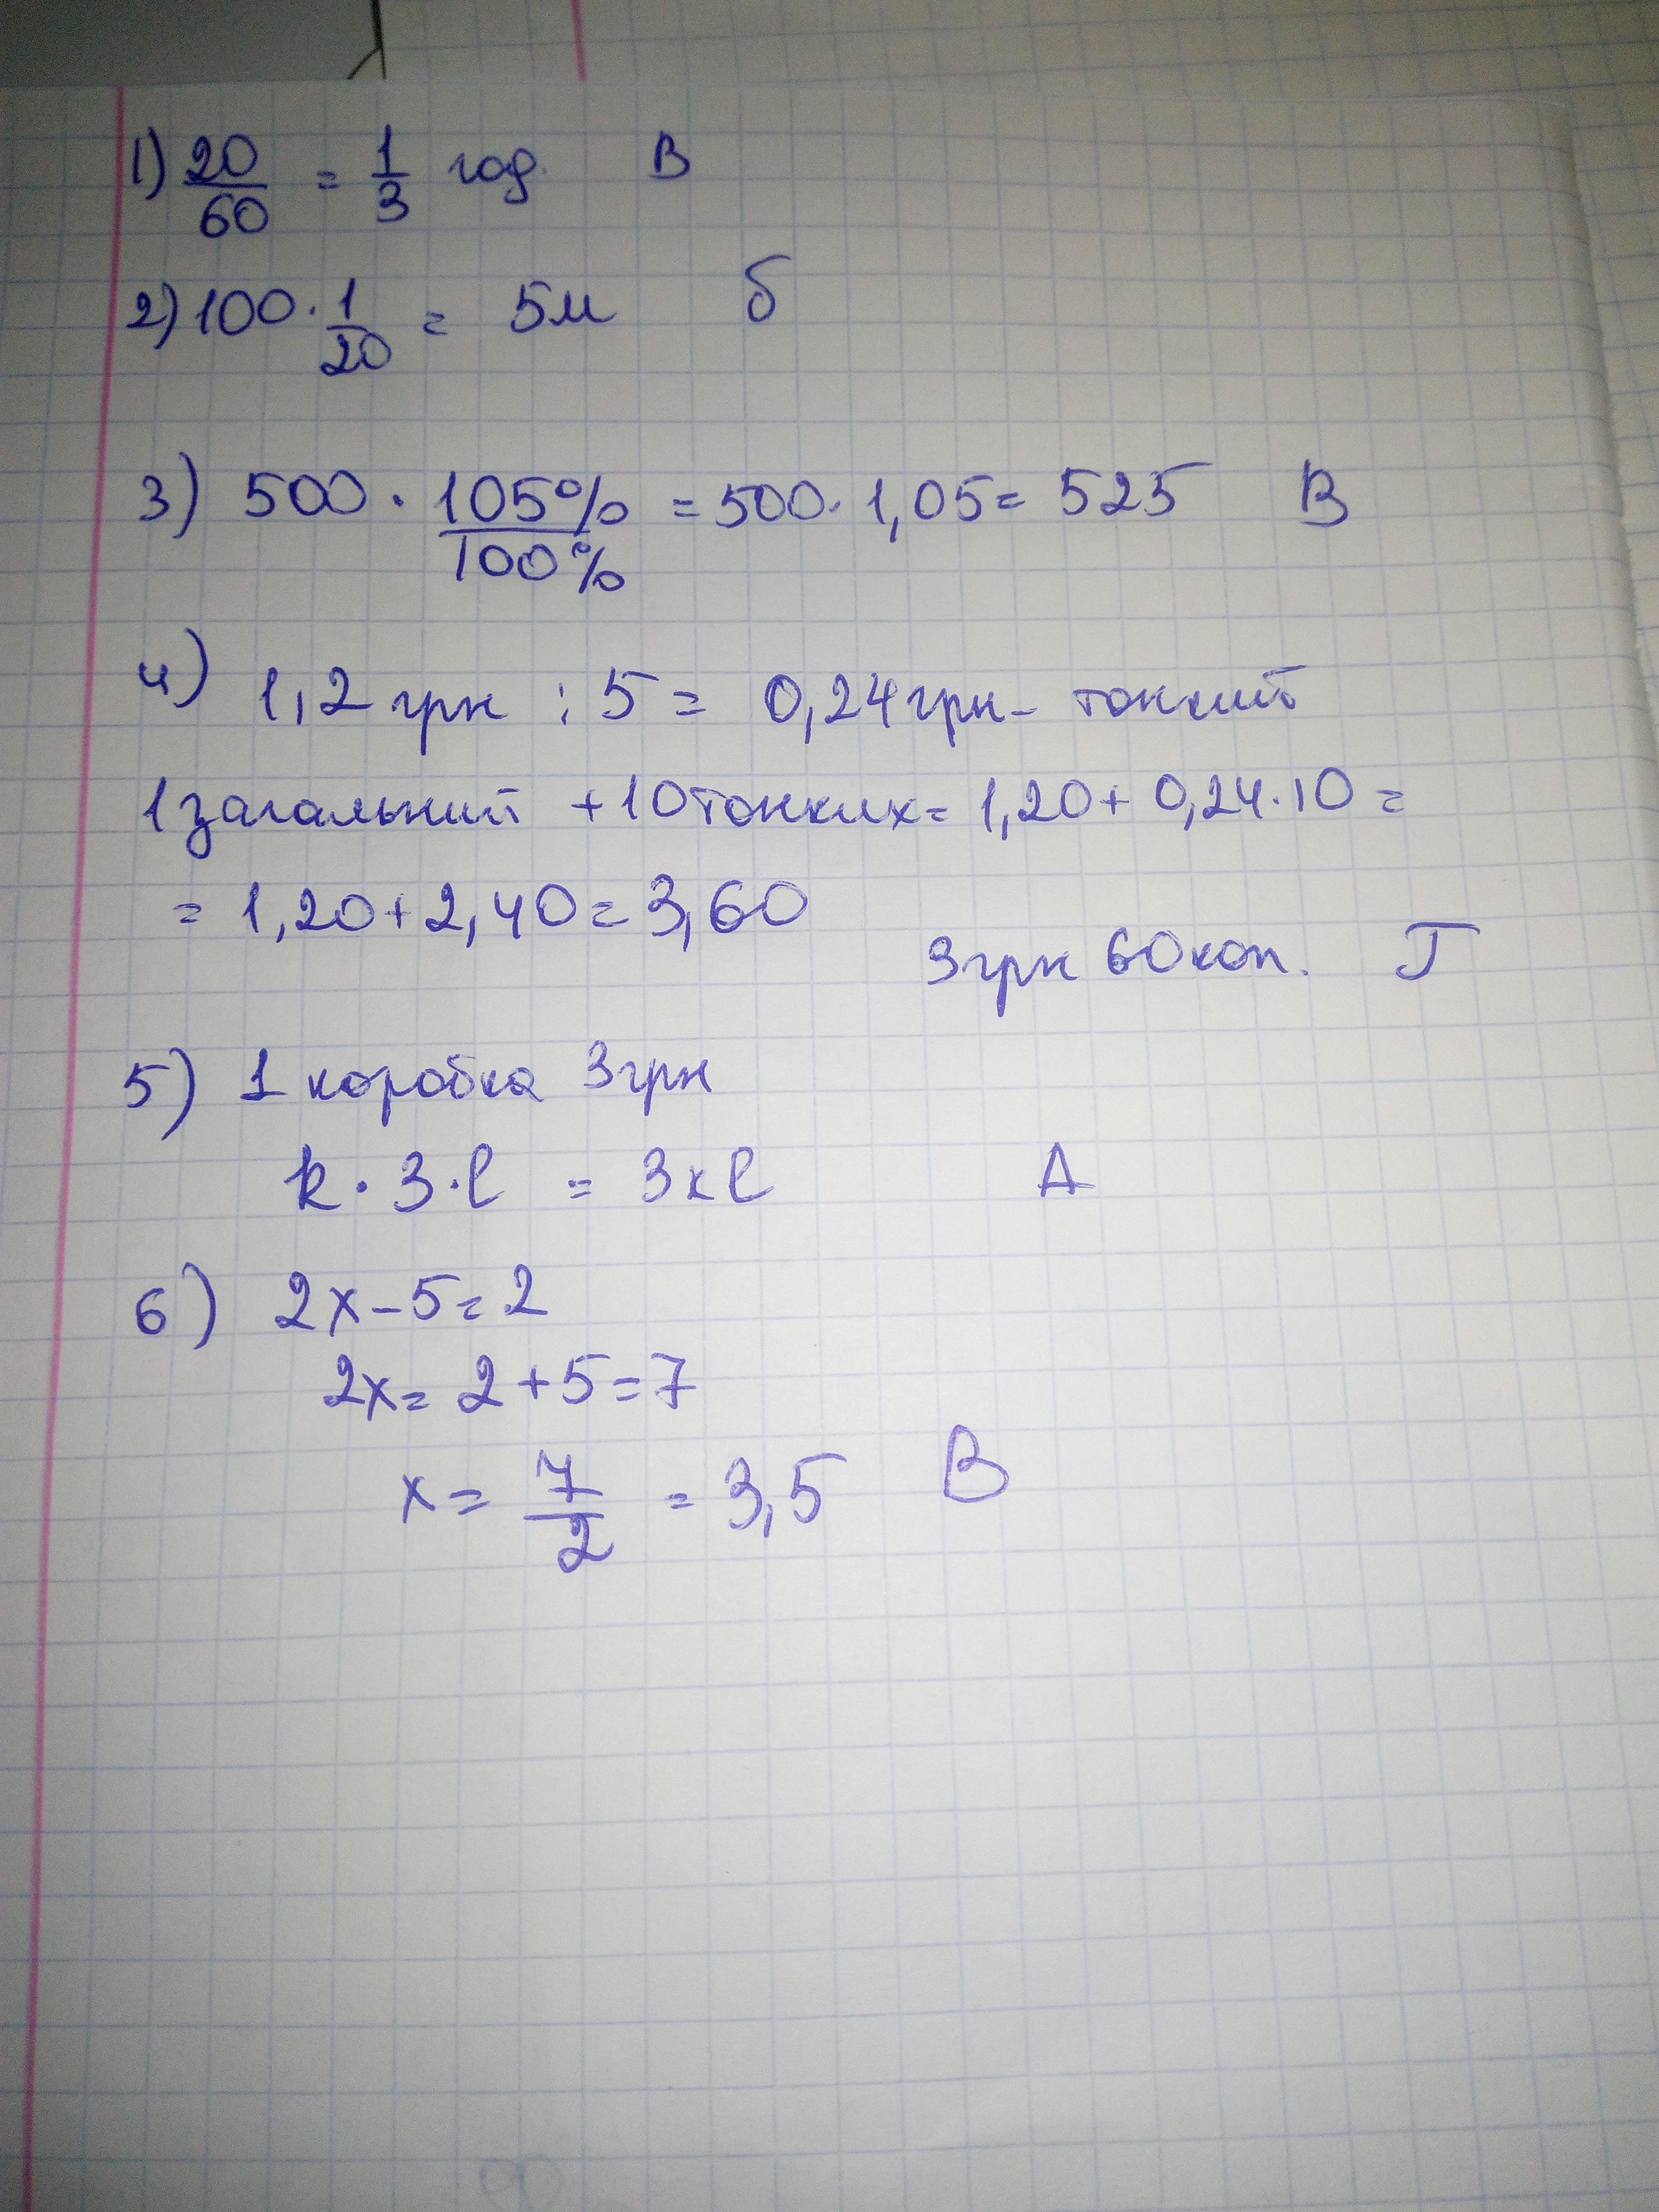 1) 20/60 = 1/3 год. В
2) 100 · 1/20 = 5м б
3) 500 · 105%/100% = 500 · 1,05 = 525 В
4) 1,2 грн : 5 = 0,24 грн - тонкий
1 загальний + 10 тонких = 1,20 + 0,24 · 10 =
= 1,20 + 2,40 = 3,60
3 грн 60 коп. Г
5) 1 коробка 3 грн
k · 3 · l = 3кl А
6) 2x - 5 = 2
2x = 2 + 5 = 7
x = 7/2 = 3,5 В